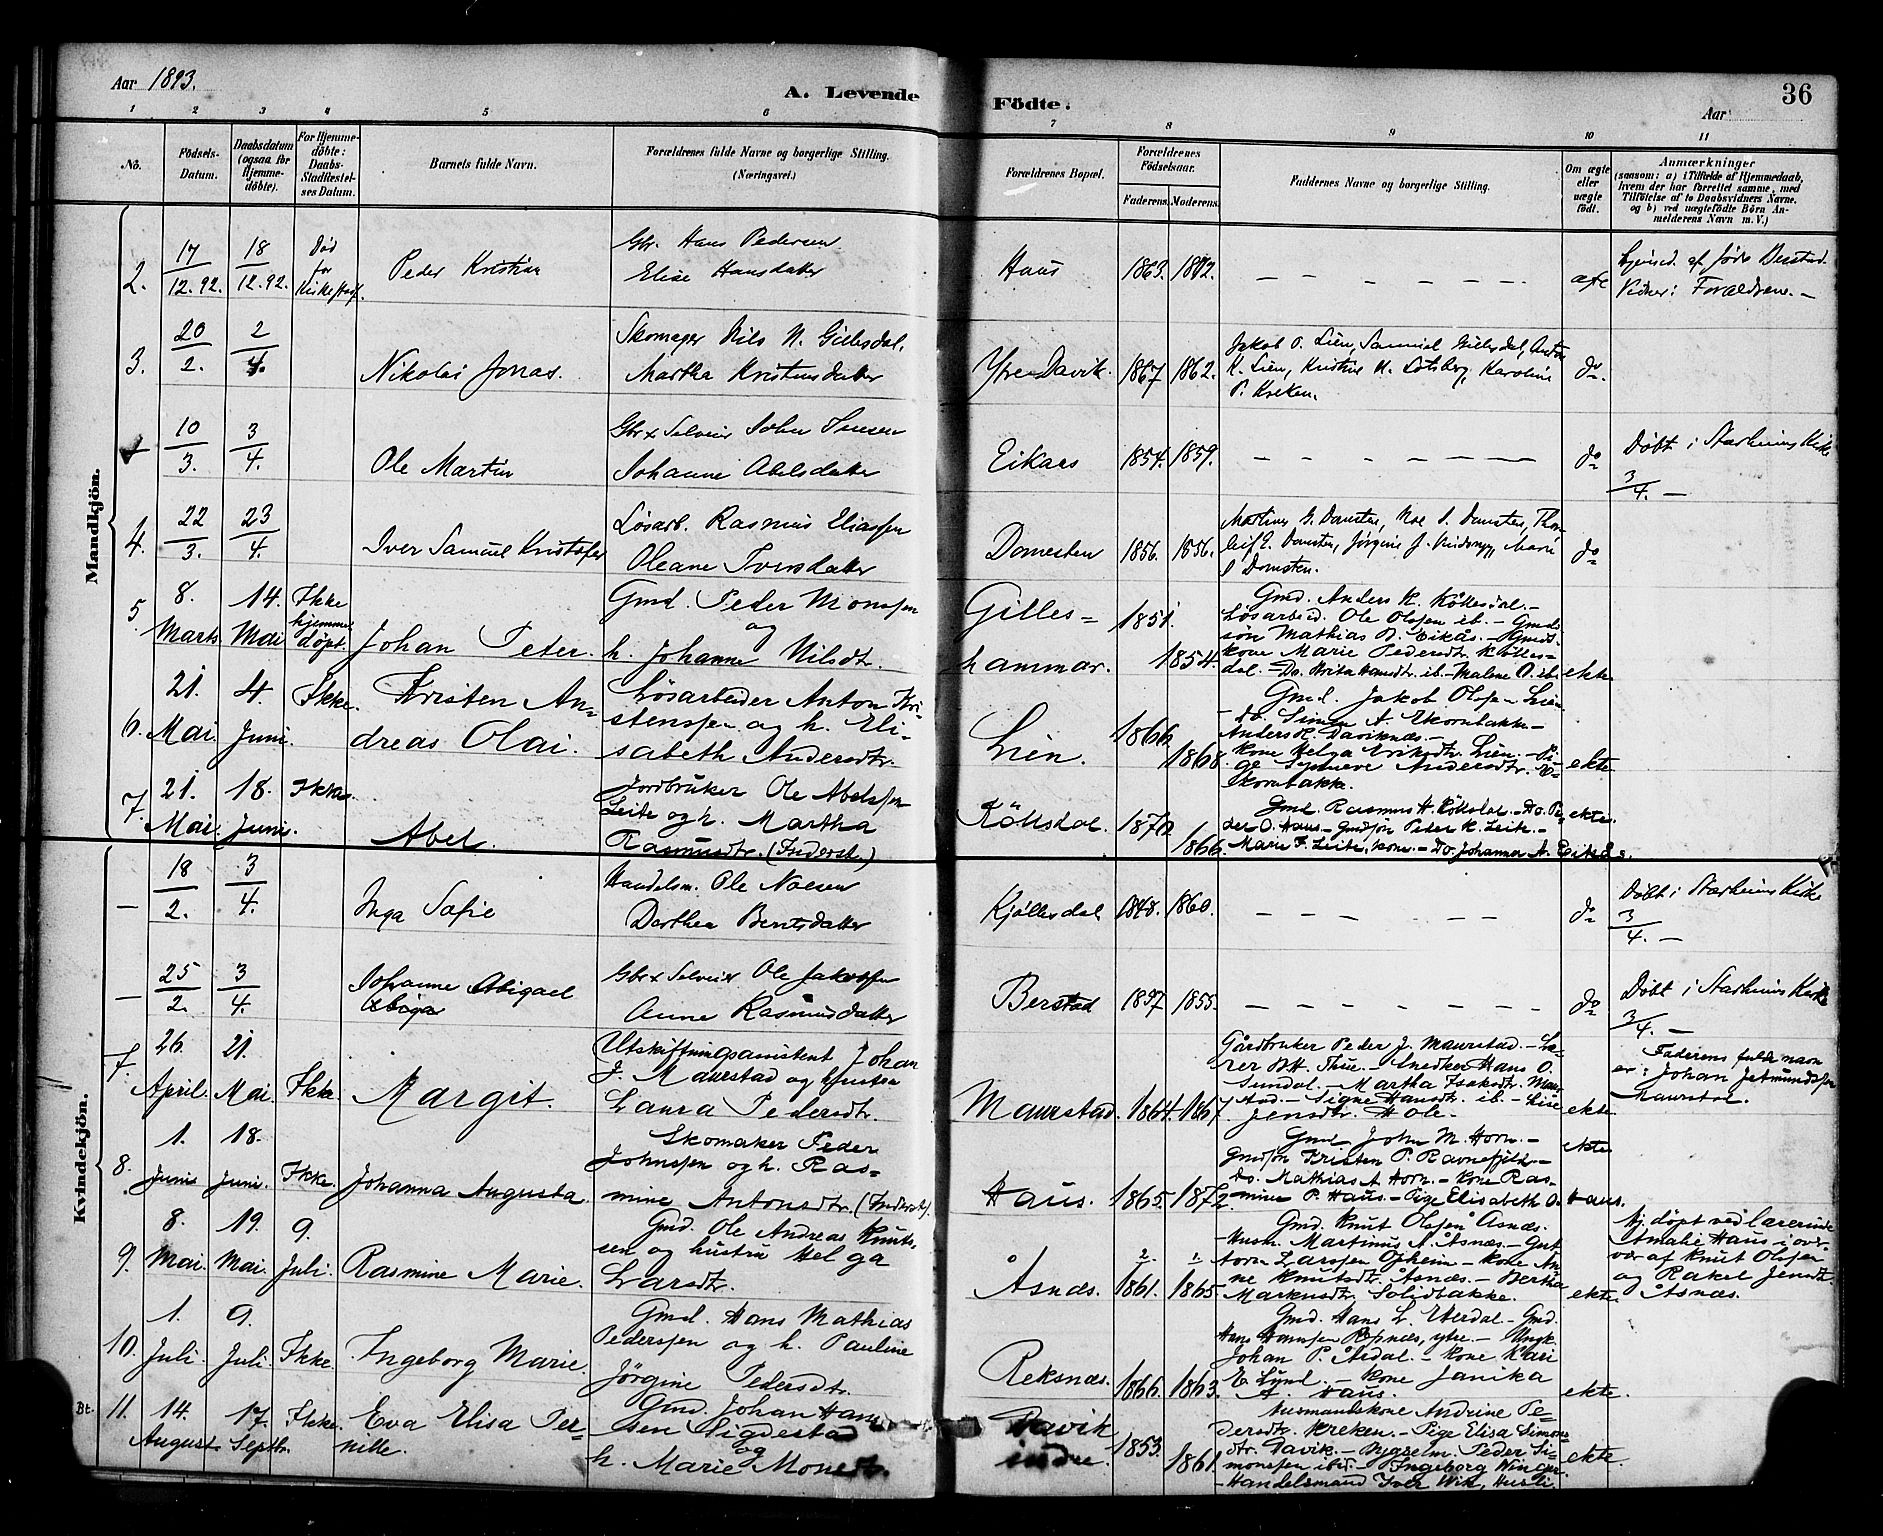 Aar 1893.
A. Levende Födte.
Aar
36
1 2 3 4 5 6 7 8 9 10 11
No.
Födsels-Datum.
Daabsdatum (ogsaa for Hjemme-döbte).
For Hjemme-döbte: Daabs-Stadfæstel-ses Datum.
Barnets fulde Navn.
Forældrenes fulde Navne og borgerlige Stilling. (Næringsvei.)
Forældrenes Bopæl.
Forældrenes Födselsaar.
Faderens. Moderens.
Faddernes Navne og borgerlige Stilling.
Om ægte eller uægte födt.
Anmærkninger
(saasom: a) i Tilfælde af Hjemmedaab, hvem der har forrettet samme, med Tilföielse af to Daabsvidners Navne, og b) ved uægtefödte Börn An-melderens Navn m. V.)
Mandkjön.
2. 17/12.92. 18/12.92. Död før
Peder Kristian
Gbr. Hans Pedersen
Elise Hansdatter
Haus 1863.
Vidner: Forældrene. —
3. 20/2. 2/4.
Nikolai Jonas.
Skomager Nils N. Gillesdal.
Martha Kristensdatter
Ytre Davik. 1867 1862.
Jakob O. Lien, Samuel Gillesdal, Anton
K. Lien, Kristine
P. Kreken.
do.
10/3. 3/4.
Ole Martin
Gbr & Selveier
Johanne Abelsdatter
Eikaas 1854. 1859.
do
Döbt i Starheims Kirke
3/4. —
4. 22/3. 23/4.
Iver Samuel Kristofer
Løsarb. Rasmus Eliassen
Oleane Iversdatter
Domesten 1856. 1856.
Domsten.
do
5 8. Marts 14. Mai Ikke hjemme døpt.
Johan Peter.
Gmd. Peder Monssen
og
h. Johanne Nilsdt.
Gilles=
hammar. 1851. 1854.
Gmd. Anders R. Köllesdal. —
Løsarbeid. Ole Olssen ib. — Gmds
søn Mathias D. Eikås. — Gmds
kone Marie Pedersdt. Kölles=
dal. —
ekte
6. 21. Mai. 4. Juni. Ikke.
Kristen An=
dreas Olai.
Løsarbeider Anton Kri=
stenssen og h. Eli=
sabeth Andersdtr.
Lien. 1866 1868.
Gmd. Jakob Olssen Lien
— Do. Simen A. Ekornbakke —
Anders Daviknæs. —
kone Helga Eriksdtr. Lien. — Pi=
ge Synneve Andersdtr. E=
kornbakke.
ekte
7. 21. Mai. 18. Juni. Ikke
Abel.
Jordbruker Ole Abelssen
Leite og h. Martha
Rasmusdtr. (Inderst.)
Köllsdal. 1870. 1866.
Gmd. Rasmus H. Köllsdal. — Do. Pe=
der O. Haus — Gmdssøn Peder R. Leite. —
Marie F. Leite, kone. — Do. Johanna A. Eikås.
ekte.
Kvindekjön.
— 18/2. 3/4.
Inga Sofie
Handelsm. Ole Noesen
Dorthea Berntsdatter
Kjöllesdal 1848. 1860.
do
Döbt i Starheims Kirke
3/4. —
— 25/2. 3/4.
Johanne Abigael
Gbr & Selveier Ole Jakobssen
Anne Rasmusdatter
Berstad 1857 1855.
do
Döbt i Starheims Kirke
3/4. —
7. 26. April. 21. Mai. Ikke
Margit.
Utskiftningsassistent Johan
J. Maurstad og hustru
Laura Pedersdtr.
Maurstad. 1864. 1867.
Gårdbruker Peder J. Maurstad. — Læ=
rer Thue. — Snedker Hans O.
Sundal. — Martha Isaksdtr. Maur=
stad. — Signe Hansdtr. ib. — Lise
Jensdtr. Hole.
ekte
Faderens fulde navn
er: Johan Jetmundssen
Maurstad.
8. 1. Juni 18. Juni. Ikke.
Johanna Augusta
Skomaker Peder
Johnssen og h. Ras=
mine Antonsdtr. (Inderst).
Haus. 1865. 1872.
Gmd. John M. Horn. —
Gmdssøn Kristen P. Ravnefjeld. —
Do. Mathias A Horn. — kone Ras=
mine P. Haus. — Pige Elisabeth O. Haus.
ekte
9. 8. Mai. 19. Mai. 9. Juli.
Rasmine Marie.
Gmd. Ole Andreas Knuts=
sen og hustru Helga
Larsdtr.
Åsnæs. 1861. 1865.
Gmd. Knut Olssen Åsnæs.
— Husm. Martinus A. Åsnæs. — Gut=
torm Larssen Opheim — kone An=
ne Knutsdtr. Åsnæs. — Bertha
Markusdtr. Solidbakke.
ekte.
Hj. døpt ved lærerinde
Amalie Haus i over=
vær af Knut Olssen
og Rakel Jensdtr.
Åsnæs.
10. 1. Juli. 9. Juli. Ikke.
Ingeborg Marie
Gmd. Hans Mathias
Pederssen og h. Pauline
Jörgine Pedersdtr.
Reksnæs. 1866. 1863.
Gmd. Hans L. Endal — Gmd.
Hans Hanssen Repnæs, ytre. — Ungk.
Johan P. Årdal. — kone Kari
E. Lund. — kone Janika
A. Haus.
ekte.
Bt. 11. 14. August 17. Septbr. Ikke.
Eva Elisa Per=
nille.
Gmd. Johan Hans
sen Sigdestad
og
h. Marie Monsdtr.
Davik
indre. 1853. 1861.
Husmandskone Andrine Pe=
dersdtr. Kreken. — Pige Elisa Simons=
dtr. Davik. — Bygselm. Peder Si=
monssen ibid. — Ingeborg Winger.
— Handelsmand Iver Wik,
ekte.